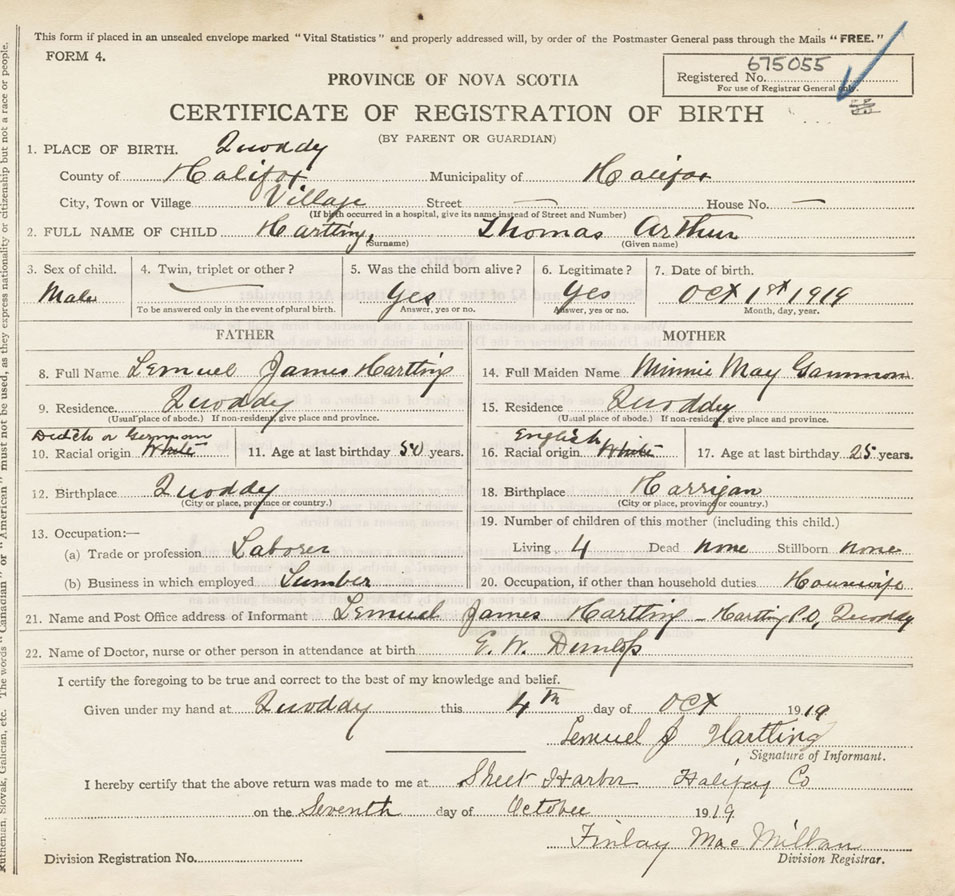 This form if placed in an unsealed envelope marked "Vital Statistics" and properly addressed will, by order of the Postmaster General pass through the Mails "FREE."
FORM 4.
675055
Registered No.
For use of Registrar General only.
PROVINCE OF NOVA SCOTIA
CERTIFICATE OF REGISTRATION OF BIRTH
(BY PARENT OR GUARDIAN)
1. PLACE OF BIRTH. Quoddy
County of Halifax Municipality of Halifax
City, Town or Village Village Street — House No. —
(If birth occurred in a hospital, give its name instead of Street and Number)
2. FULL NAME OF CHILD Hartling, Thomas Arthur
(Surname) (Given name)
3. Sex of child. 4. Twin, triplet or other? 5. Was the child born alive? 6. Legitimate? 7. Date of birth.
Male Yes Yes Oct 1st 1919
To be answered only in the event of plural birth. Answer, yes or no. Answer, yes or no. Month, day, year.
FATHER MOTHER
8. Full Name Lemuel James Hartling 14. Full Maiden Name Minnie May Gammon
9. Residence. Quoddy 15. Residence Quoddy
(Usual place of abode.) If non-resident, give place and province. (Usual place of abode.) If non-resident, give place and province.
Dutch or German English
10. Racial origin White 11. Age at last birthday years. 16. Racial origin White 17. Age at last birthday 25 years.
12. Birthplace Quoddy 18. Birthplace Harrigan
(City or place, province or country.) (City or place, province or country.)
13. Occupation:— 19. Number of children of this mother (including this child.)
(a) Trade or profession Laborer Living 4 Dead none Stillborn none
(b) Business in which employed Lumber 20. Occupation, if other than household duties Housewife
21. Name and Post Office address of Informant Lemuel James Hartling - Harting P.O, Quoddy
22. Name of Doctor, nurse or other person in attendance at birth E. W. Dunlop
I certify the foregoing to be true and correct to the best of my knowledge and belief.
Given under my hand at Quoddy this 4th day of Oct 1919
Lemuel J Hartling
Signature of Informant.
I hereby certify that the above return was made to me at Sheet Harbor Halifax Co
on the Seventh day of October 1919.
Finlay MacMillan
Division Registrar.
Division Registration No.
Ruthenian, Slovak, Galician, etc. The words "Canadian" or "American" must not be used, as they express nationality or citizenship but not a race or people.